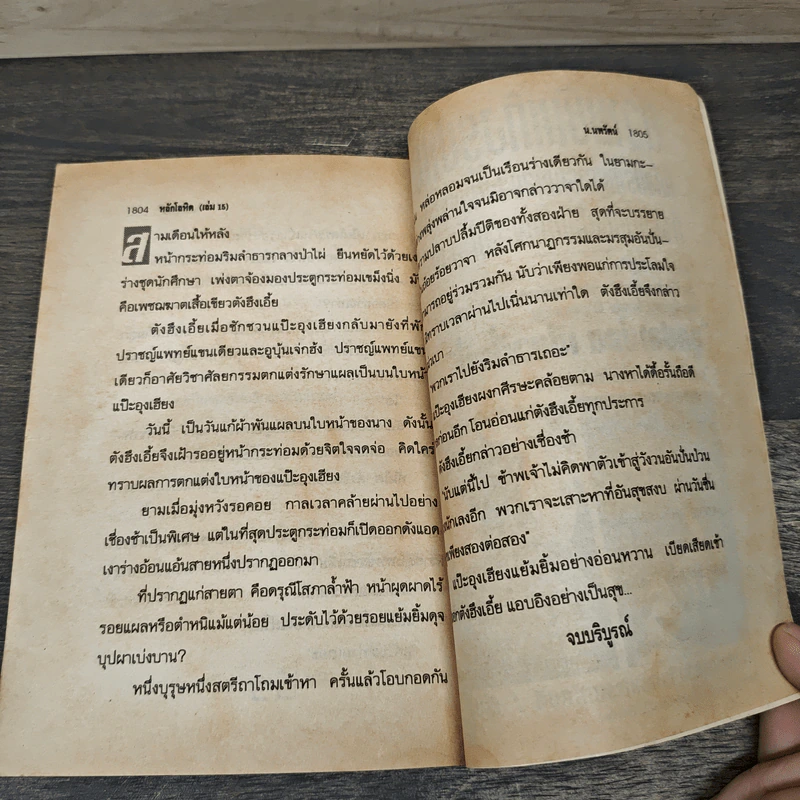 1804 หลักโลหิต (เล่ม 15)
สามเดือนให้หลัง
หน้ากระท่อมริมลำธารกลางป่าไผ่ ยืนหยัดไว้ด้วย
ร่างชุดนักศึกษา เพ่งตาจ้องมองประตูกระท่อมเขม็งนิ่ง
คือเพชฌฆาตเสื้อเขียวตังฮึงเอี้ย
ตังฮึงเอี้ยเมื่อชักชวนแป๊ะอุงเฮียงกลับมายังที่
ปราชญ์แพทย์แขนเดียวและอูบุ้นเจ่กฮ้ง ปราชญ์แพทย์
เดียวก็อาศัยวิชาศัลยกรรมตกแต่งรักษาแผลเป็นบนใบหน้า
แป๊ะอุงเฮียง
วันนี้ เป็นวันแก้ผ้าพันแผลบนใบหน้าของนาง ดังนั้น
ตังฮึงเอี้ยจึงเฝ้ารออยู่หน้ากระท่อมด้วยจิตใจจดจ่อ คิดใคร่
ทราบผลการตกแต่งใบหน้าของแป๊ะอุงเฮียง
ยามเมื่อมุ่งหวังรอคอย กาลเวลาคล้ายผ่านไปอย่าง
เชื่องช้าเป็นพิเศษ แต่ในที่สุดประตูกระท่อมก็เปิดออกดังแอด
เงาร่างอ้อนแอ้นสายหนึ่งปรากฏออกมา
ที่ปรากฏแก่สายตา คือดรุณีโสภาล้ำฟ้า หน้าผุดผาดไร้
รอยแผลหรือตำหนิแม้แต่น้อย ประดับไว้ด้วยรอยแย้มยิ้มดุจ
บุปผาเบ่งบาน?
หนึ่งบุรุษหนึ่งสตรีถาโถมเข้าหา ครั้นแล้วโอบกอดกัน
น.นพรัตน์ 1805
หล่อหลอมจนเป็นเรือนร่างเดียวกัน ในยามกะ-
พลุ่งพล่านใจจนมิอาจกล่าววาจาใดได้
ปลาบปลื้มปีติของทั้งสองฝ่าย สุดที่จะบรรยาย
ถ้อยร้อยวาจา หลังโศกนาฏกรรมและมรสุมอันปั่น-
อยู่ร่วมรวมกัน นับว่าเพียงพอแก่การประโลมใจ
ทราบเวลาผ่านไปเนิ่นนานเท่าใด ตังฮึงเอี้ยจึงกล่าว
พวกเราไปยังริมลำธารเถอะ"
แป๊ะอุงเฮียงผงกศีรษะคล้อยตาม นางหาได้ดื้อรั้นถือดี
ก่อนอีก โอนอ่อนแก่ตังฮึงเอี้ยทุกประการ
ตังฮึงเอี้ยกล่าวอย่างเชื่องช้า
นับแต่นี้ไป ข้าพเจ้าไม่คิดพาตัวเข้าสู่วังวนอันปั่นป่วน
นักเลงอีก พวกเราจะเสาะหาที่อันสุขสงบ ผ่านวันชื่น
เพียงสองต่อสอง"
แป๊ะอุงเฮียงแย้มยิ้มอย่างอ่อนหวาน เบียดเสียดเข้า
ตังฮึงเอี้ย แอบอิงอย่างเป็นสุข...
จบบริบูรณ์